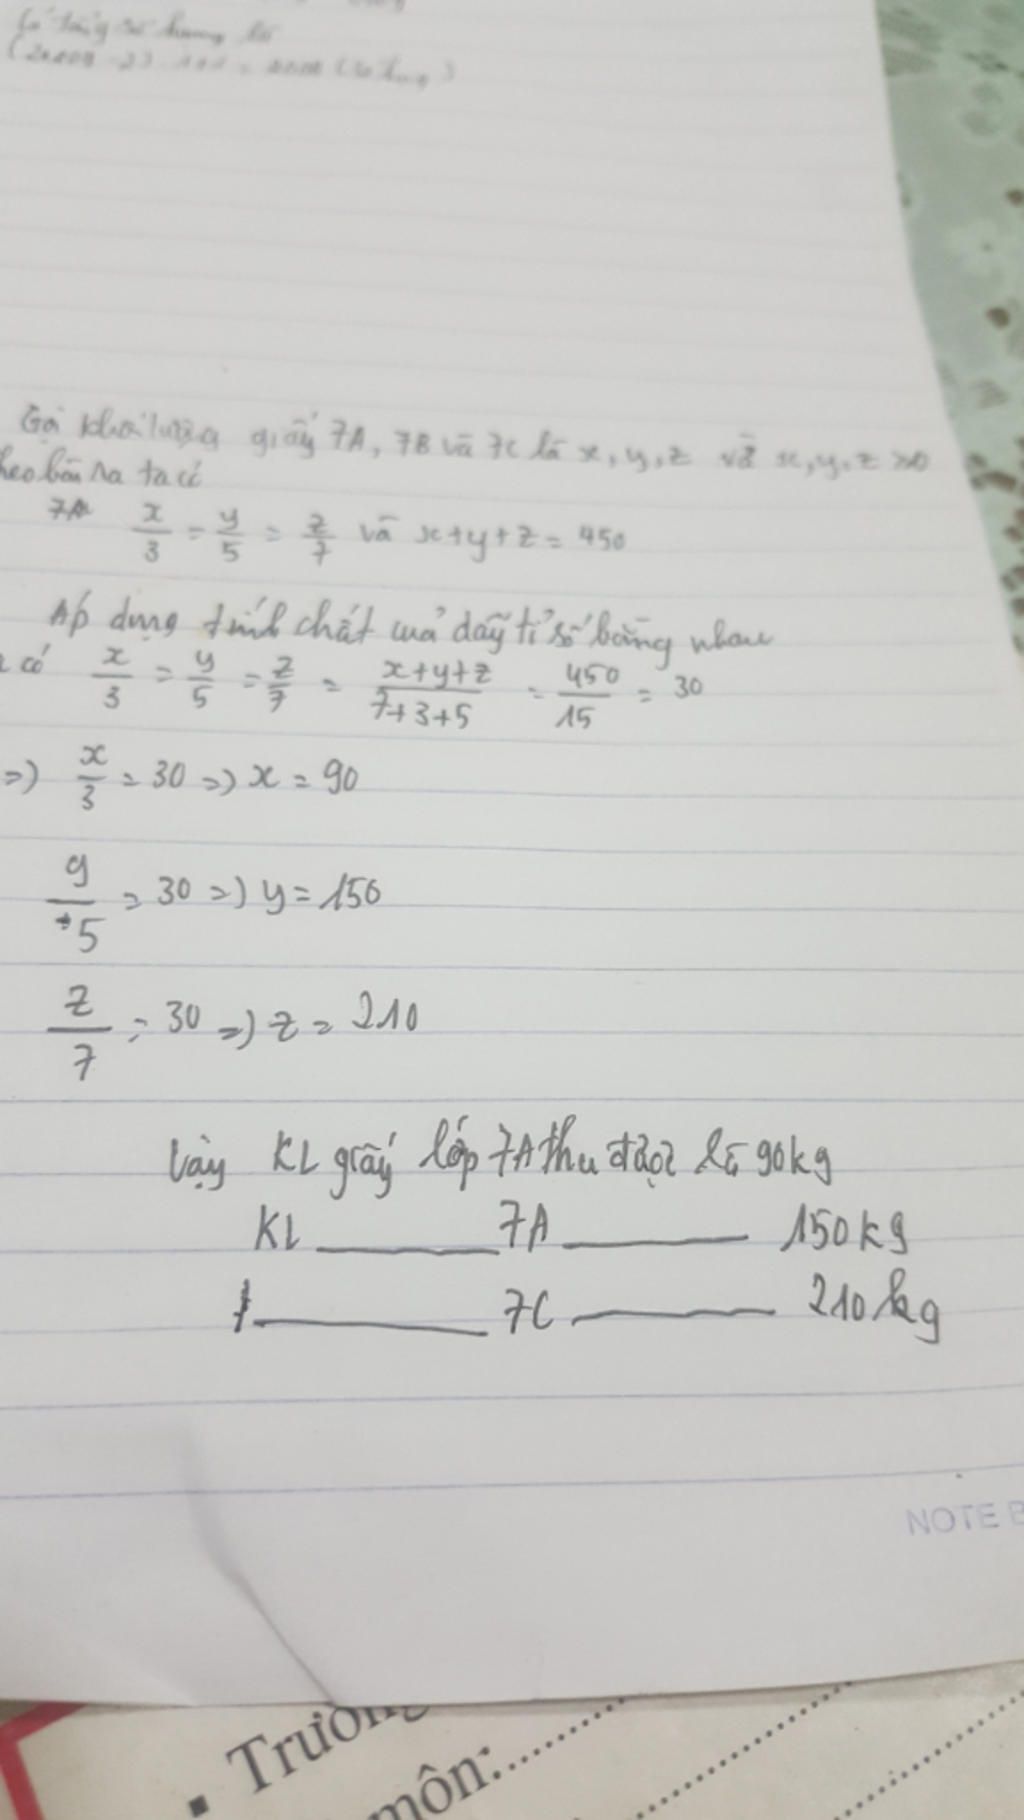 Gọi khối lượng giấy 7A, 7B và 7C là x, y, z và x, y, z >0
heo bài ra ta có
7A x/3 = y/5 = z/7 và x+y+z = 450
Áp dụng tính chất của dãy tỉ số bằng nhau
a có x/3 = y/5 = z/7 = (x+y+z)/(7+3+5) = 450/15 = 30
=) x/3 = 30 =) x = 90
y/5 = 30 =) y = 150
z/7 = 30 =) z = 210
Vậy KL giấy lớp 7A thu được là 90kg
KL ___ 7A ___ 150kg
___ 7C ___ 210kg
NOTE B
• Trường
môn:..........